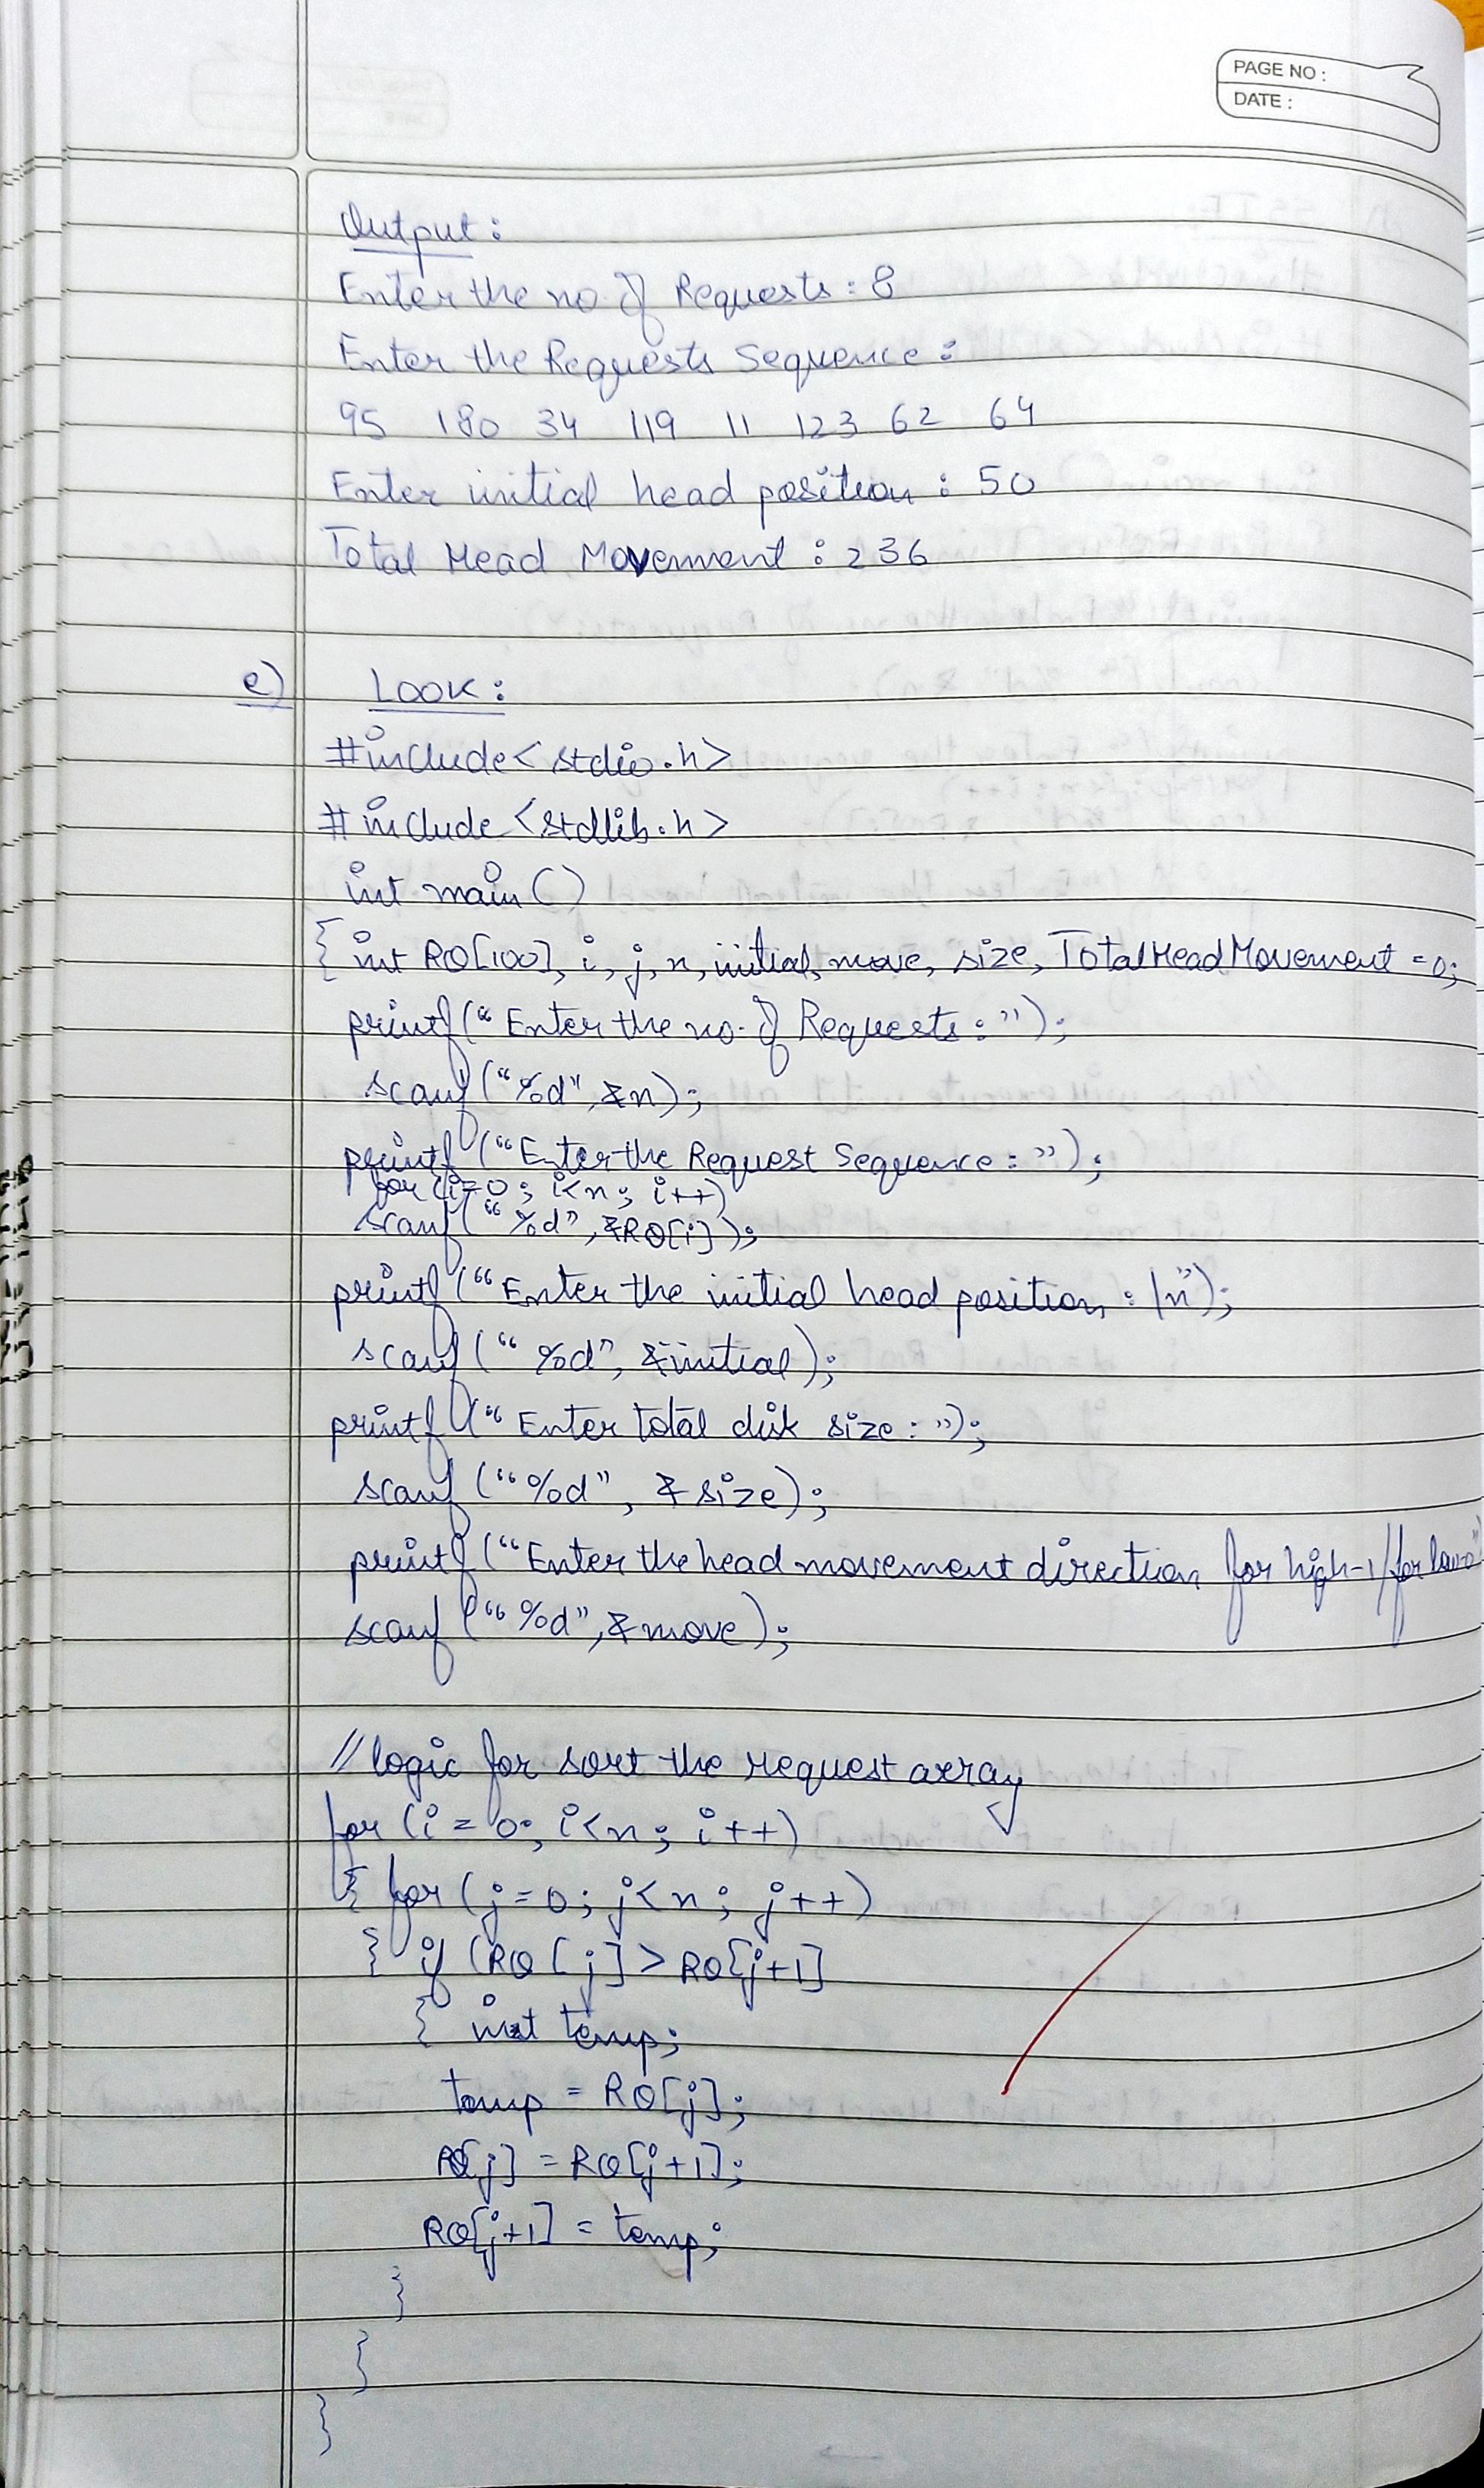 PAGE NO :
DATE :
Output :
Enter the no. of Requests : 8
Enter the Requests Sequence :
95 180 34 119 11 123 62 64
Enter initial head position : 50
Total Head Movement : 236
e) LOOK :
#include<stdio.h>
#include<stdlib.h>
int main()
{ int RQ[100], i, j, n, initial, move, size, TotalHeadMovement = 0;
printf("Enter the no. of Requests : ");
scanf("%d", &n);
printf("Enter the Request Sequence : ");
for (i=0; i<n; i++)
scanf("%d", &RQ[i]);
printf("Enter the initial head position : \n");
scanf("%d", &initial);
printf("Enter total disk size : ");
scanf("%d", &size);
printf("Enter the head movement direction for high-1/for low-0"
scanf("%d", &move);
//logic for sort the request array
for (i = 0; i<n; i++)
{ for (j=0; j<n; j++)
{ if (RQ[j] > RQ[j+1]
{ int temp;
temp = RQ[j];
RQ[j] = RQ[j+1];
RQ[j+1] = temp;
}
}
}